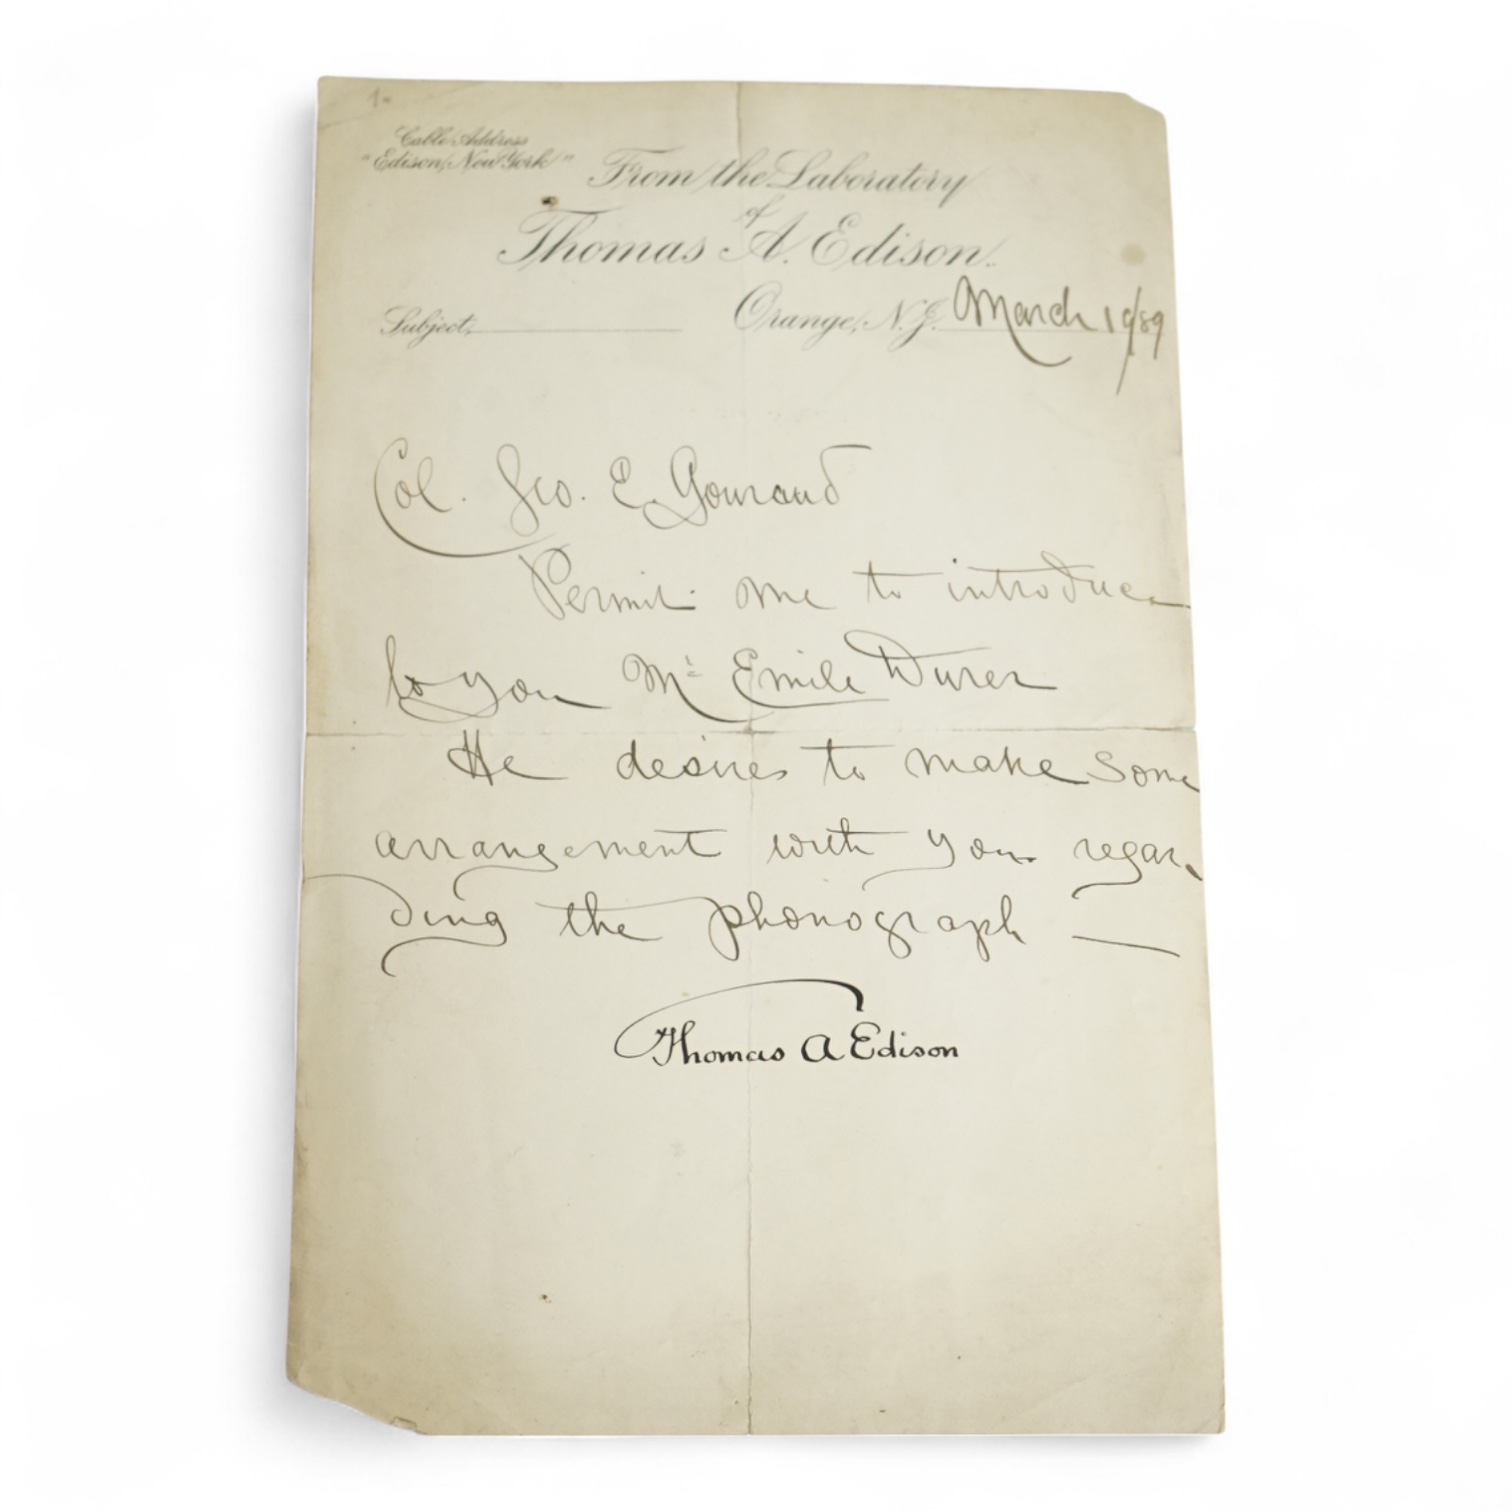 1-
Cable Address
"Edison, New York"
From the Laboratory
of
Thomas A. Edison.
Subject,
Orange, N.J. March 19/89
Col. Geo. E. Gouraud
Permit me to introduce
to you Mr Emile Durer
He desires to make some
arrangement with you regar-
ding the phonograph —
Thomas A Edison